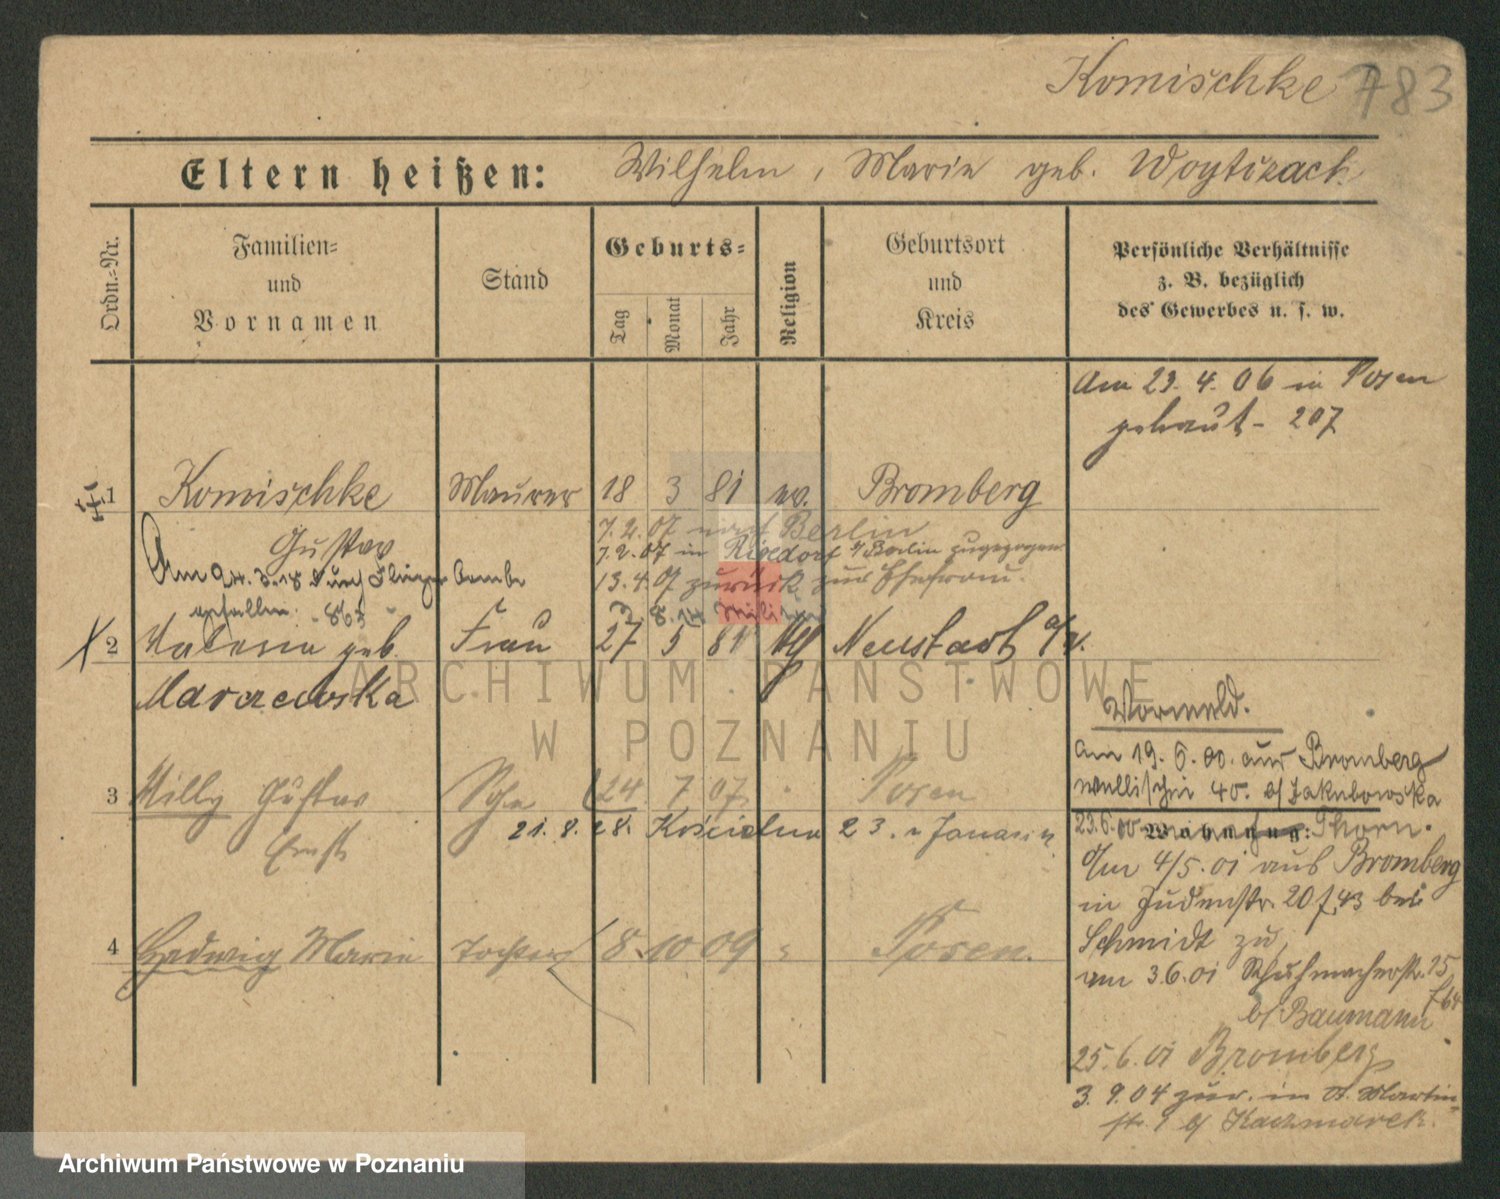 Komischke 783
Eltern heißen: Wilhelm, Marie geb. Woytizack
Ordn.-Nr.
Familien-
und
Vornamen
Stand
Geburts-
Tag
Monat
Jahr
Religion
Geburtsort
und
Kreis
Persönliche Verhältnisse
z. B. bezüglich
des Gewerbes u. s. w.
Am 23. 4. 06 in Posen
getraut - 207
1 Komischke Maurer 18 3 81 ev. Bromberg
Gustav
7.2.07 nach Berlin
7.2.07 in Rixdorf b/Berlin zugezogen
13.4.07 zurück zur Ehefrau.
Am 24.3.18 durch Flieger Bombe
gefallen. 863
8.14 Militär
2 Valeria geb. Frau 27 5 81 Neustadt a/W.
Marzewska
Vormeld.
Am 19. 6. 00. aus Bromberg
Wallischei 40. b/Jakubowska
3 Willy Gustav Sohn 24 7 07 Posen
Ernst
21. 8. 28. Kościelna 23. Janasik
23.6.00 Wohnung: Thorn.
Am 4/5.01 aus Bromberg
in Judenstr. 20 f. 43 bei
Schmidt zu,
am 3.6.01 Schuhmacherstr. 15
b/Baumann
4 Hedwig Marie Tochter 8. 10 09 Posen.
25.6.01 Bromberg
3. 9. 04 zur. in St. Martin-
str. b/ Kaczmarek.
ARCHIWUM PAŃSTWOWE
W POZNANIU
Archiwum Państwowe w Poznaniu